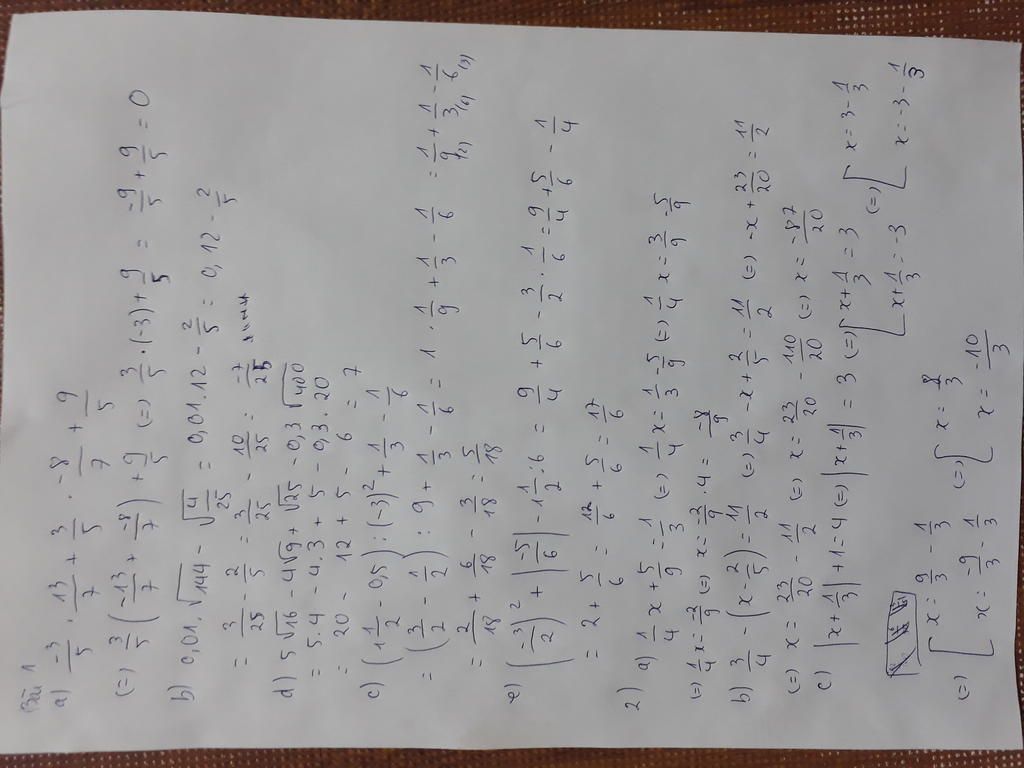 Bài 1
a) -3/5 . 13/7 + 3/5 . -8/7 + 9/5
(=) 3/5 (-13/7 + -8/7) + 9/5 (=) 3/5 . (-3) + 9/5 = -9/5 + 9/5 = 0
b) 0,01 . √144 - √4/25 = 0,01 . 12 - 2/5 = 0,12 - 2/5
= 3/25 - 2/5 = 3/25 - 10/25 = -7/25
d) 5√16 - 4√9 + √25 - 0,3√400
= 5.4 - 4.3 + 5 - 0,3.20
= 20 - 12 + 5 - 6 = 7
c) (1 1/2 - 0,5) : (-3)² + 1/3 - 1/6
= (3/2 - 1/2) : 9 + 1/3 - 1/6 = 1 . 1/9 + 1/3 - 1/6 = 1/9 (2) + 1/3 (6) - 1/6 (3)
= 2/18 + 6/18 - 3/18 = 5/18
e) (-3/2)² + |-5/6| - 1 1/2 : 6 = 9/4 + 5/6 - 3/2 . 1/6 = 9/4 + 5/6 - 1/4
= 2 + 5/6 = 12/6 + 5/6 = 17/6
2) a) 1/4 x + 5/9 = 1/3 (=) 1/4 x = 1/3 - 5/9 (=) 1/4 x = 3/9 - 5/9
(=) 1/4 x = -2/9 (=) x = -2/9 . 4 = -8/9
b) 3/4 - (x - 2/5) = 11/2 (=) 3/4 - x + 2/5 = 11/2 (=) -x + 23/20 = 11/2
(=) x = 23/20 - 11/2 (=) x = 23/20 - 110/20 (=) x = -87/20
c) |x + 1/3| + 1 = 4 (=) |x + 1/3| = 3 (=) [ x + 1/3 = 3 (=) [ x = 3 - 1/3
x + 1/3 = -3 x = -3 - 1/3
(=) [ x = 9/3 - 1/3 (=) [ x = 8/3
x = -9/3 - 1/3 x = -10/3